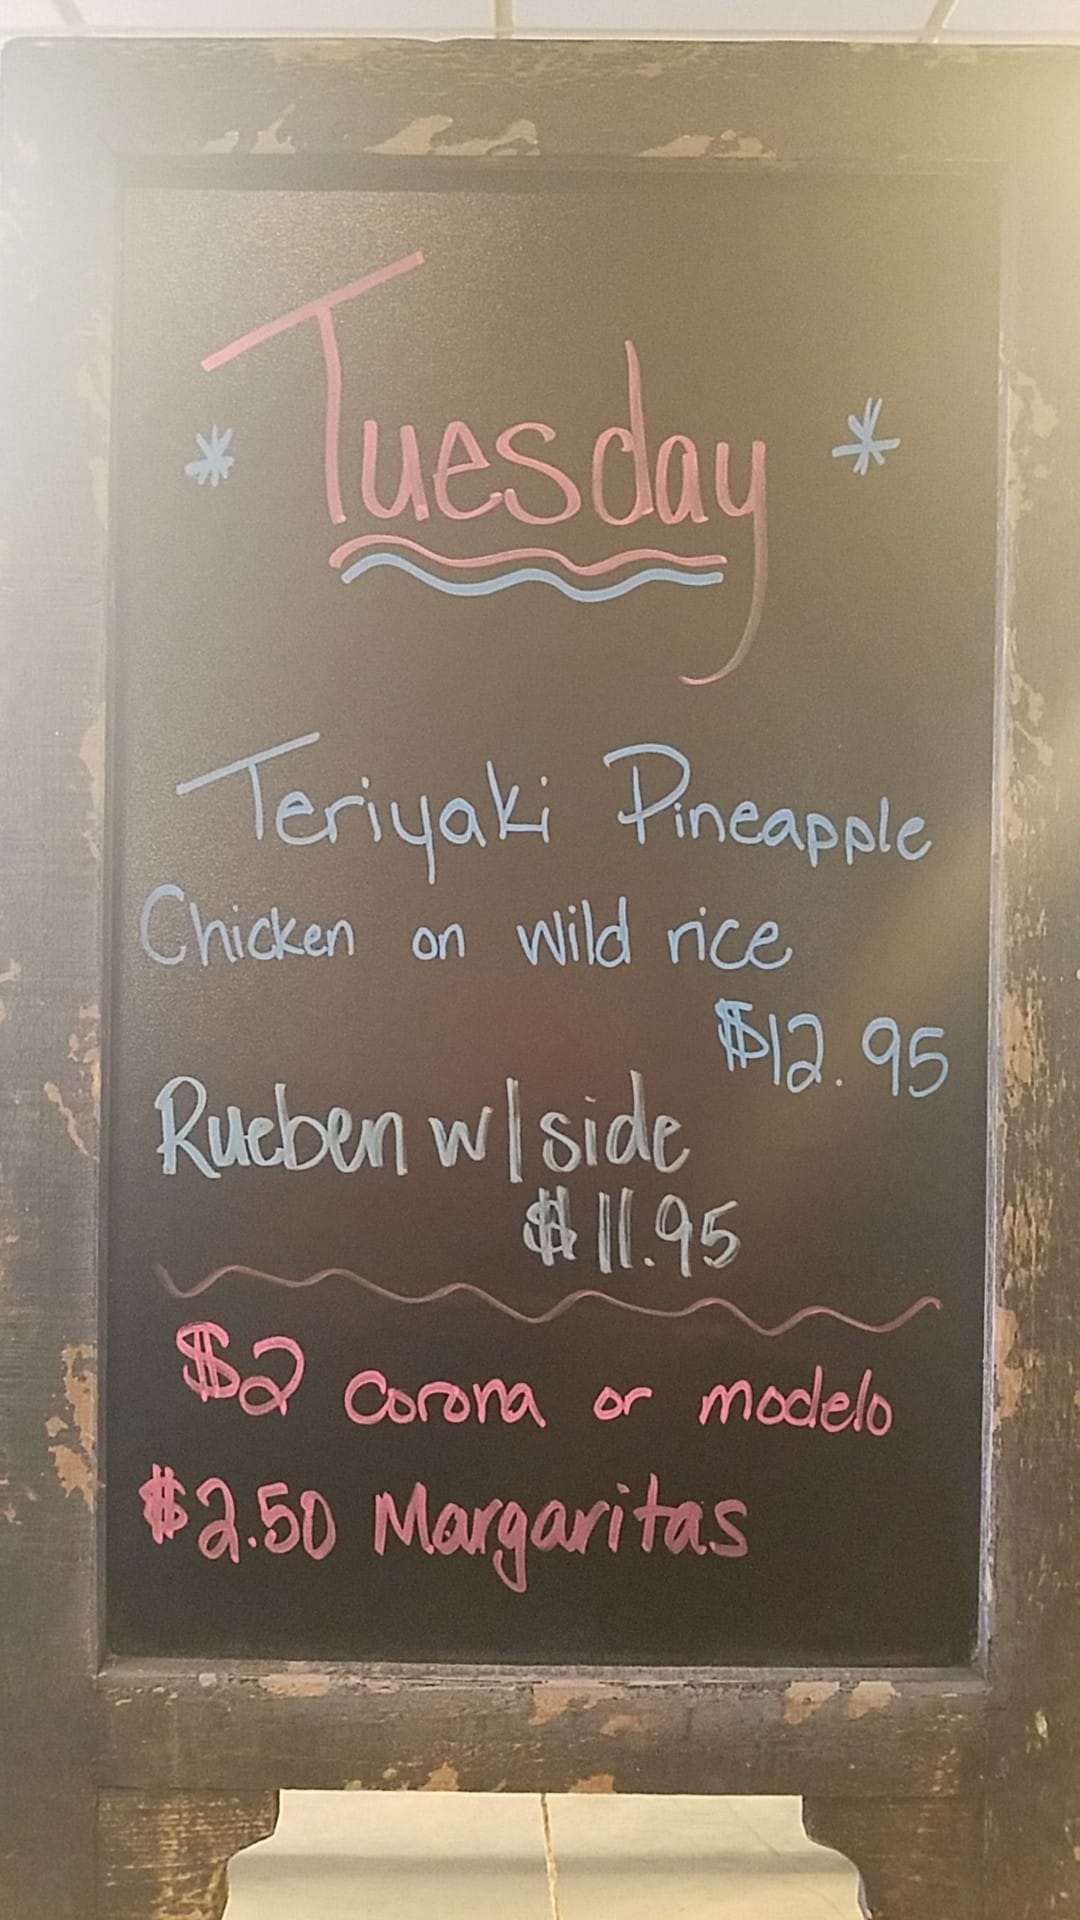 * Tuesday *
Teriyaki Pineapple
Chicken on wild rice
$12.95
Rueben w/side
$11.95
$2 corona or modelo
$2.50 Margaritas